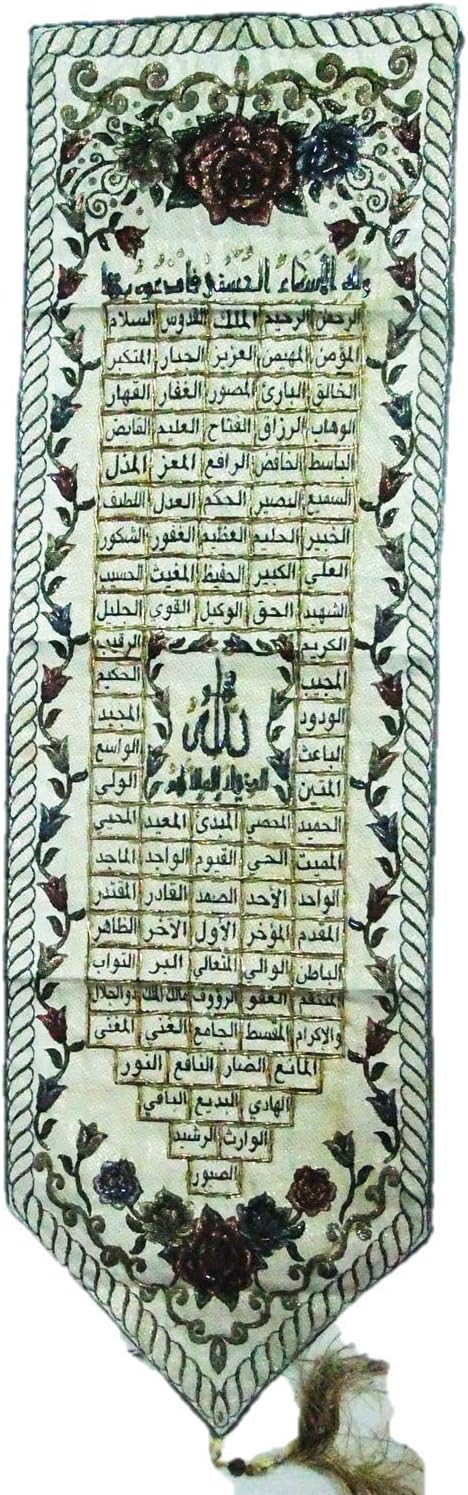 ولله الأسماء الحسنى فادعوه بها
الرحمن الرحيم الملك القدوس السلام
المؤمن المهيمن العزيز الجبار المتكبر
الخالق البارئ المصور الغفار القهار
الوهاب الرزاق الفتاح العليم القابض
الباسط الخافض الرافع المعز المذل
السميع البصير الحكم العدل اللطيف
الخبير الحليم العظيم الغفور الشكور
العلي الكبير الحفيظ المغيث الحسيب
الشهيد الحق الوكيل القوي الجليل
الكريم الرقيب
المجيب الحكيم
الودود المجيد
الله
الباعث الواسع
المتين الولي
الحميد المحصي المبدئ المعيد المحيي
المميت الحي القيوم الواجد الماجد
الواحد الأحد الصمد القادر المقتدر
المقدم المؤخر الأول الآخر الظاهر
الباطن الوالي المتعالي البر التواب
المنتقم العفو الرؤوف مالك الملك ذو الجلال
والإكرام المقسط الجامع الغني المغني
المانع الضار النافع النور
الهادي البديع الباقي
الوارث الرشيد
الصبور